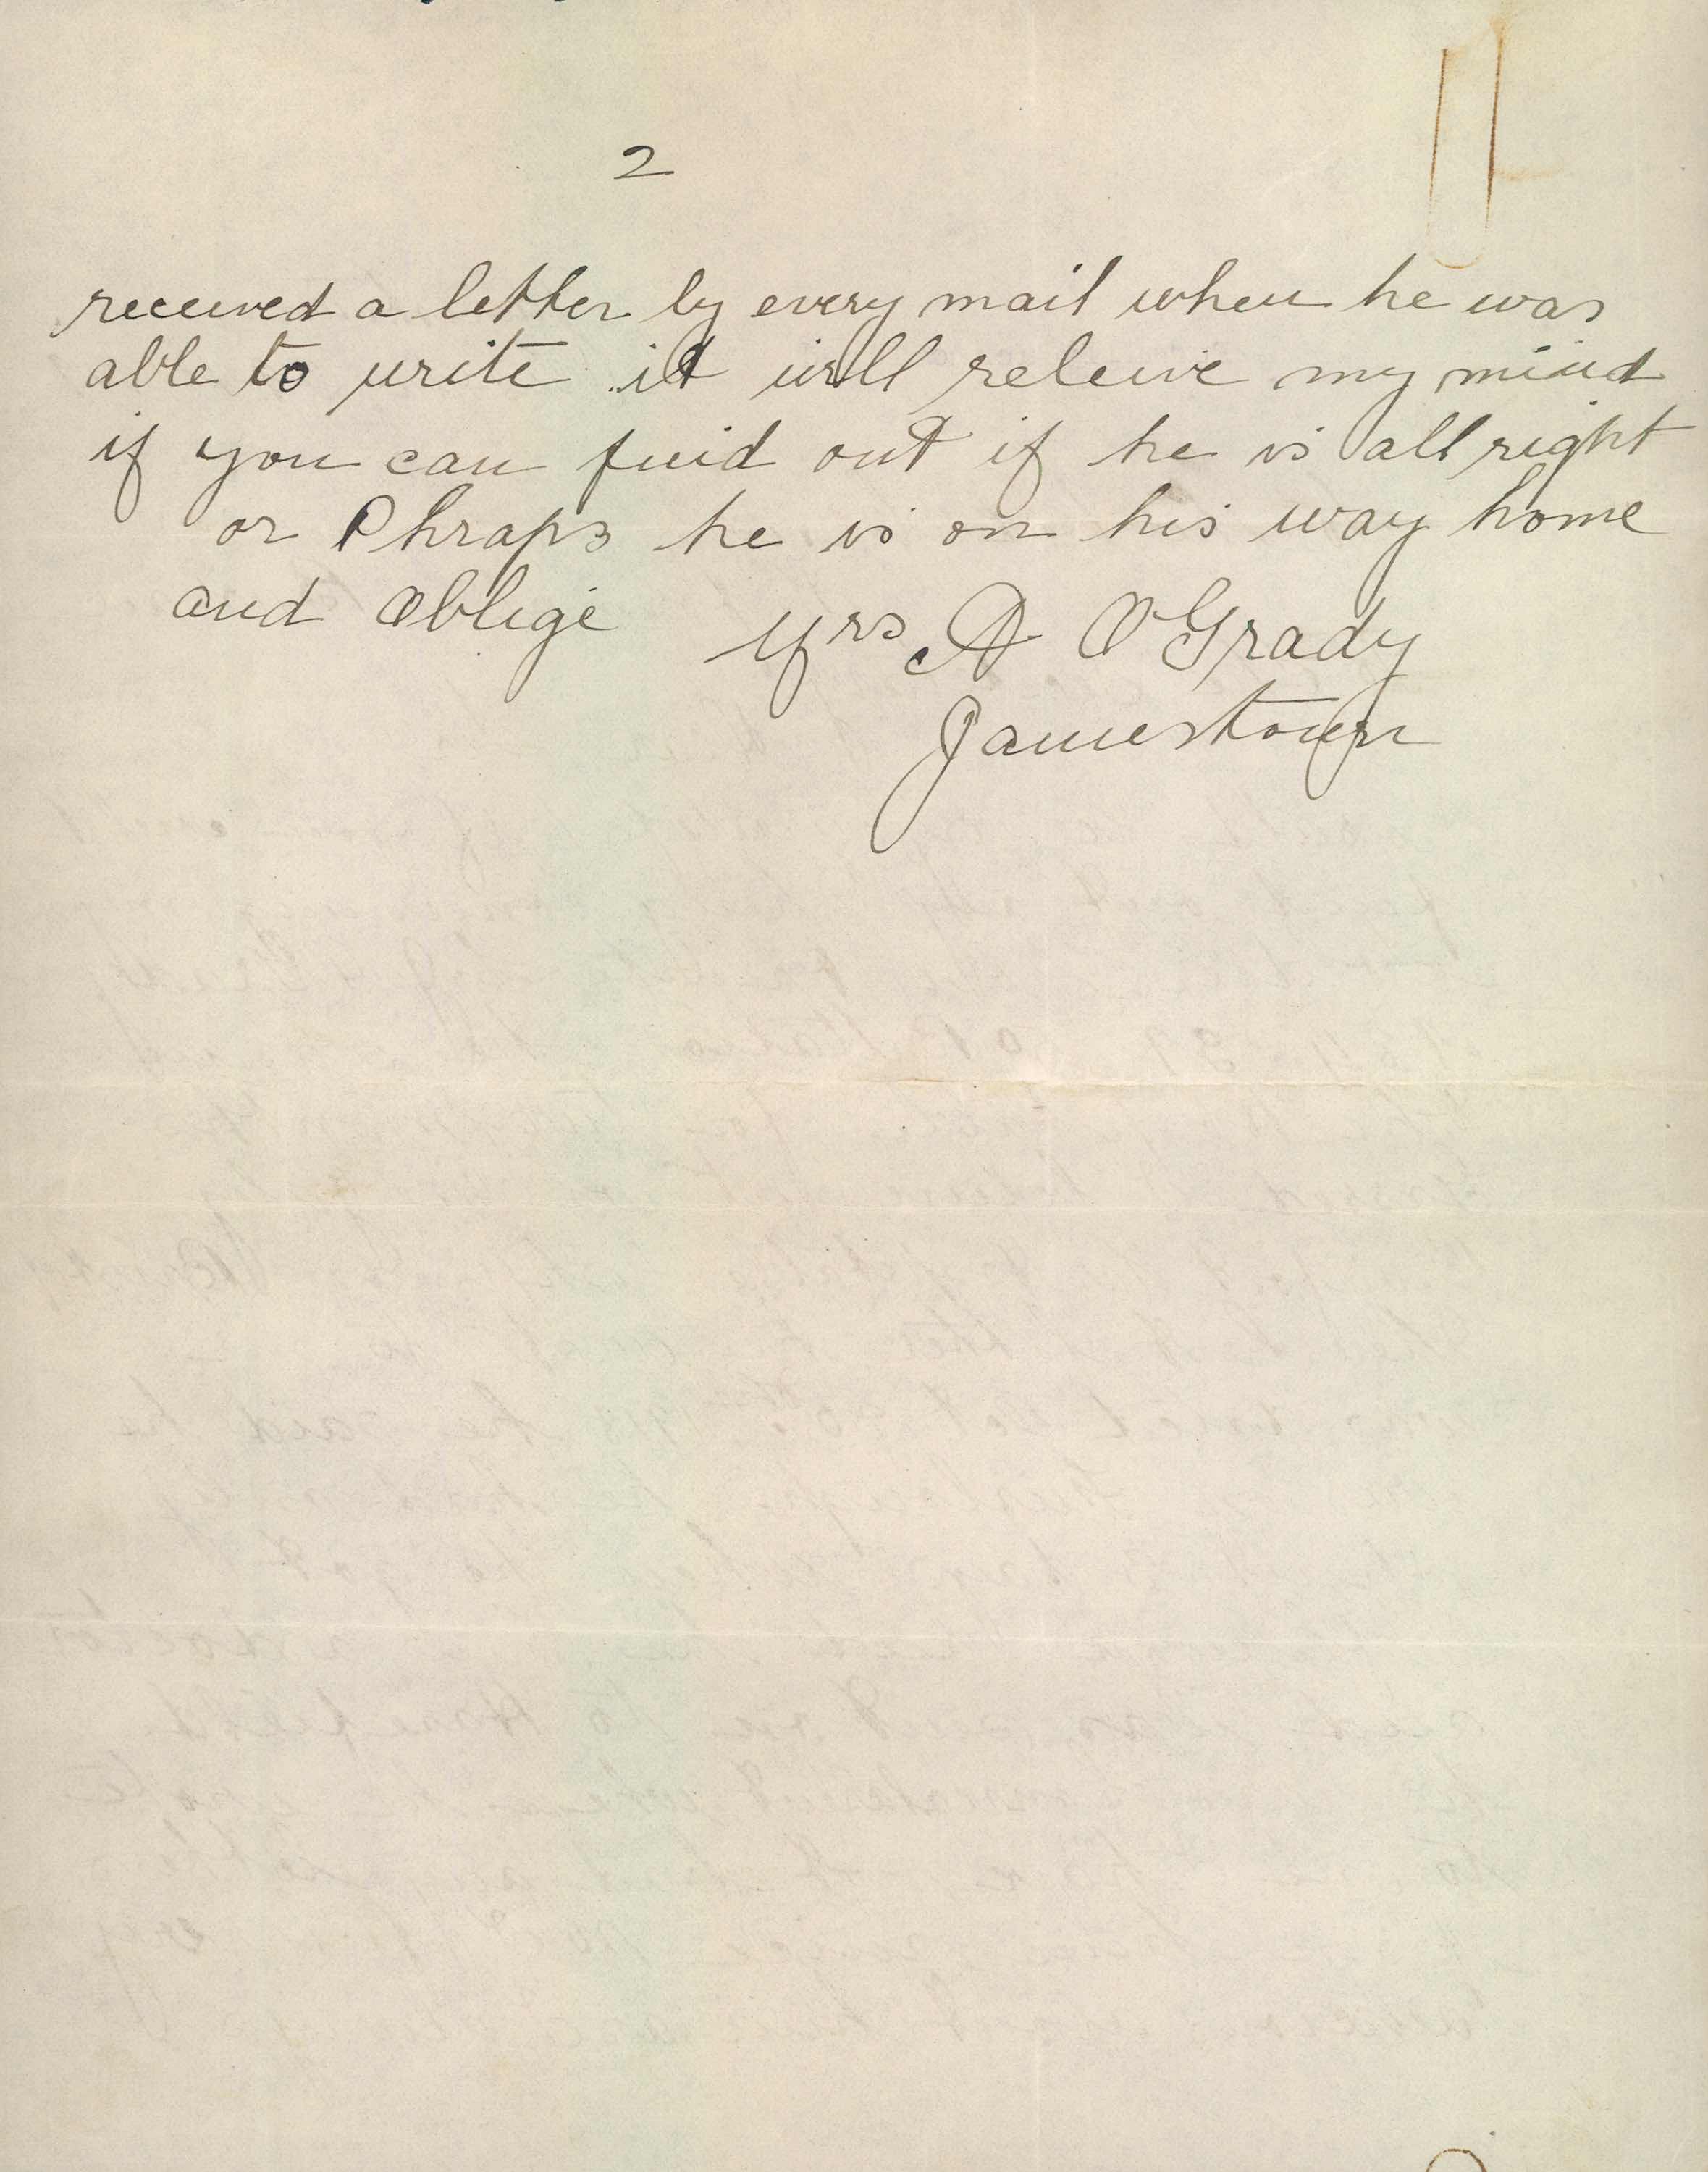 2
received a letter by every mail when he was
able to write it will releive my mind
if you can find out if he is all right
or Phraps he is on his way home
and Oblige Yrs A O'Grady
Jamestown